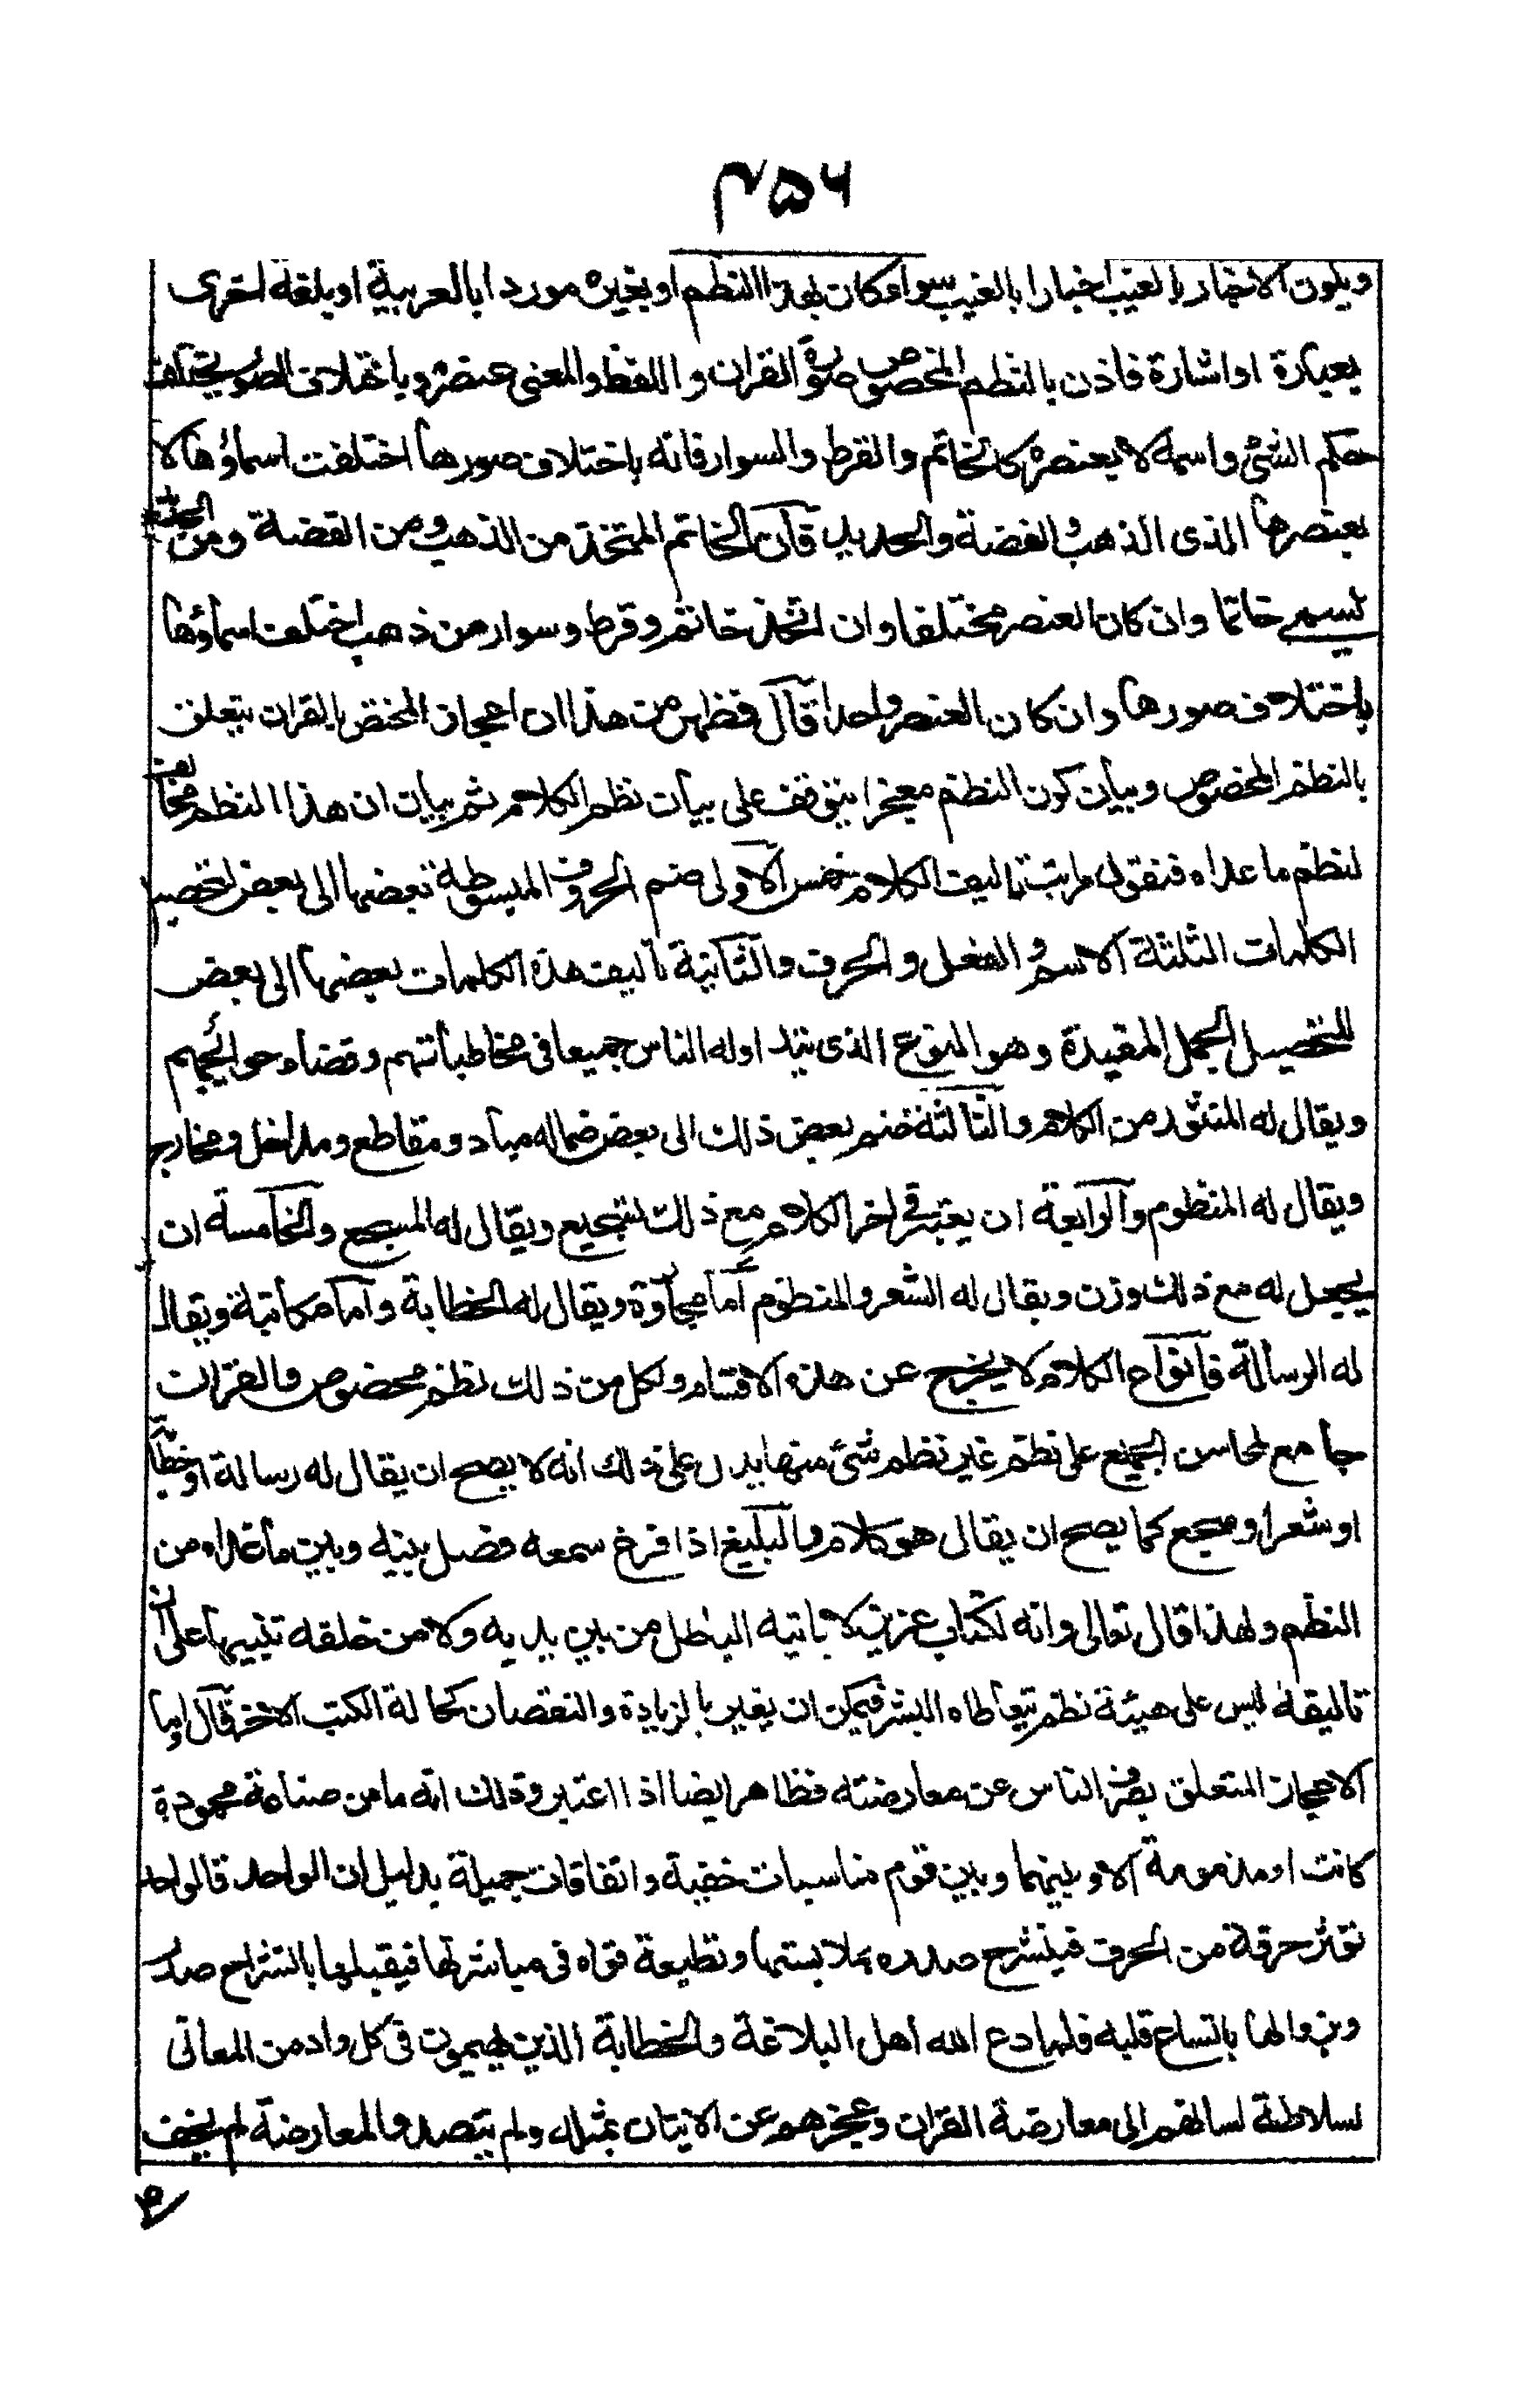 ٣٥٦
ويكون الاخبار بالغيب اخبارا بالغيب سواء كان بهذا النظم او بغيره موردا بالعربية او بلغة اخرى
بعبارة او اشارة فاذن بالنظم المخصوص صورة القران واللفظ والمعنى عنصره وباختلاف الصور يختلف
حكم الشئ واسمه لا بعنصره كالخاتم والقرط والسوار فانه باختلاف صورها اختلفت اسماؤها لا
بعنصرها الذى الذهب والفضة والحديد فان الخاتم المتخذ من الذهب ومن الفضة ومن الحديد
يسمى خاتما وان كان العنصر مختلفا وان اتخذ خاتم وقرط وسوار من ذهب اختلف اسماؤها
باختلاف صورها وان كان العنصر واحدا قال فظهر من هذا ان اعجاز المختص بالقران يتعلق
بالنظم المخصوص وبيان كون النظم معجزا يتوقف على بيان نظم الكلام ثم بيان ان هذا النظم مخالف
لنظم ما عداه فنقول مراتب تاليف الكلام خمس الاولى ضم الحروف المبسوطة بعضها الى بعض لتحصيل
الكلمات الثلثة الاسم والفعل والحرف والثانية تاليف هذه الكلمات بعضها الى بعض
لتحصيل الجمل المفيدة وهو النوع الذى يتداوله الناس جميعا فى مخاطباتهم وقضاء حوائجهم
ويقال له المنثور من الكلام والثالثة ضم بعض ذلك الى بعض ضما له مباد ومقاطع ومداخل ومخارج
ويقال له المنظوم والرابعة ان يعتبر فى اخر الكلام مع ذلك تسجيع ويقال له المسجع والخامسة ان
يجعل له مع ذلك وزن ويقال له الشعر والمنظوم اما محاورة ويقال له الخطابة واما مكاتبة ويقال
له الرسالة فانواع الكلام لا يخرج عن هذه الاقسام ولكل من ذلك نظم مخصوص والقران
جامع لمحاسن الجميع على نظم غير نظم شئ منها يدل على ذلك انه لا يصح ان يقال له رسالة او خطابة
او شعر او سجع كما يصح ان يقال هو كلام والبليغ اذا قرع سمعه فصل بينه وبين ما عداه من
النظم ولهذا قال تعالى وانه لكتاب عزيز لا ياتيه الباطل من بين يديه ولا من خلفه تنبيها على ان
تاليفه ليس على هيئة نظم يتعاطاه البشر فيمكن ان يغير بالزيادة والنقصان كحالة الكتب الاخر قال واما
الاعجاز المتعلق بصرف الناس عن معارضته فظاهر ايضا اذا اعتبر وذلك انه ما من صناعة محمودة
كانت او مذمومة الا وبينها وبين قوم مناسبات خفية واتفاقات جميلة بدليل ان الواحد فالواحد
يؤثر حرفة من الحرف فينشرح صدره بملابستها وتطيعه قواه فى مباشرتها فيقبلها بانشراح صدر
ويزاولها باتساع قلبه فلما دع الله اهل البلاغة والخطابة الذين يهيمون فى كل واد من المعانى
بسلاطة لسانهم الى معارضة القران وعجزهم عن الاتيان بمثله ولم يتصدوا لمعارضته لم يخف